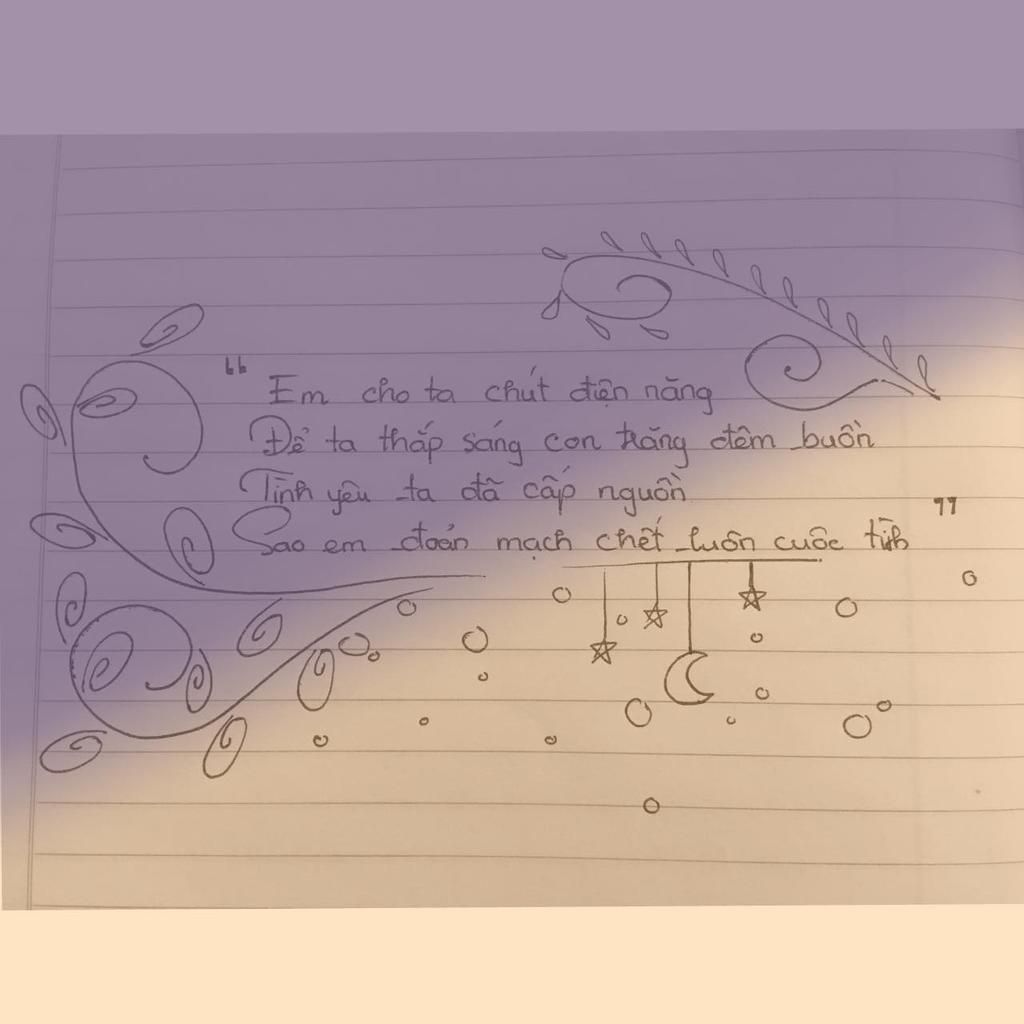 “ Em cho ta chút điện năng
Để ta thắp sáng con trăng đêm buồn
Tình yêu ta đã cấp nguồn
Sao em đoản mạch chết luôn cuộc tình ”